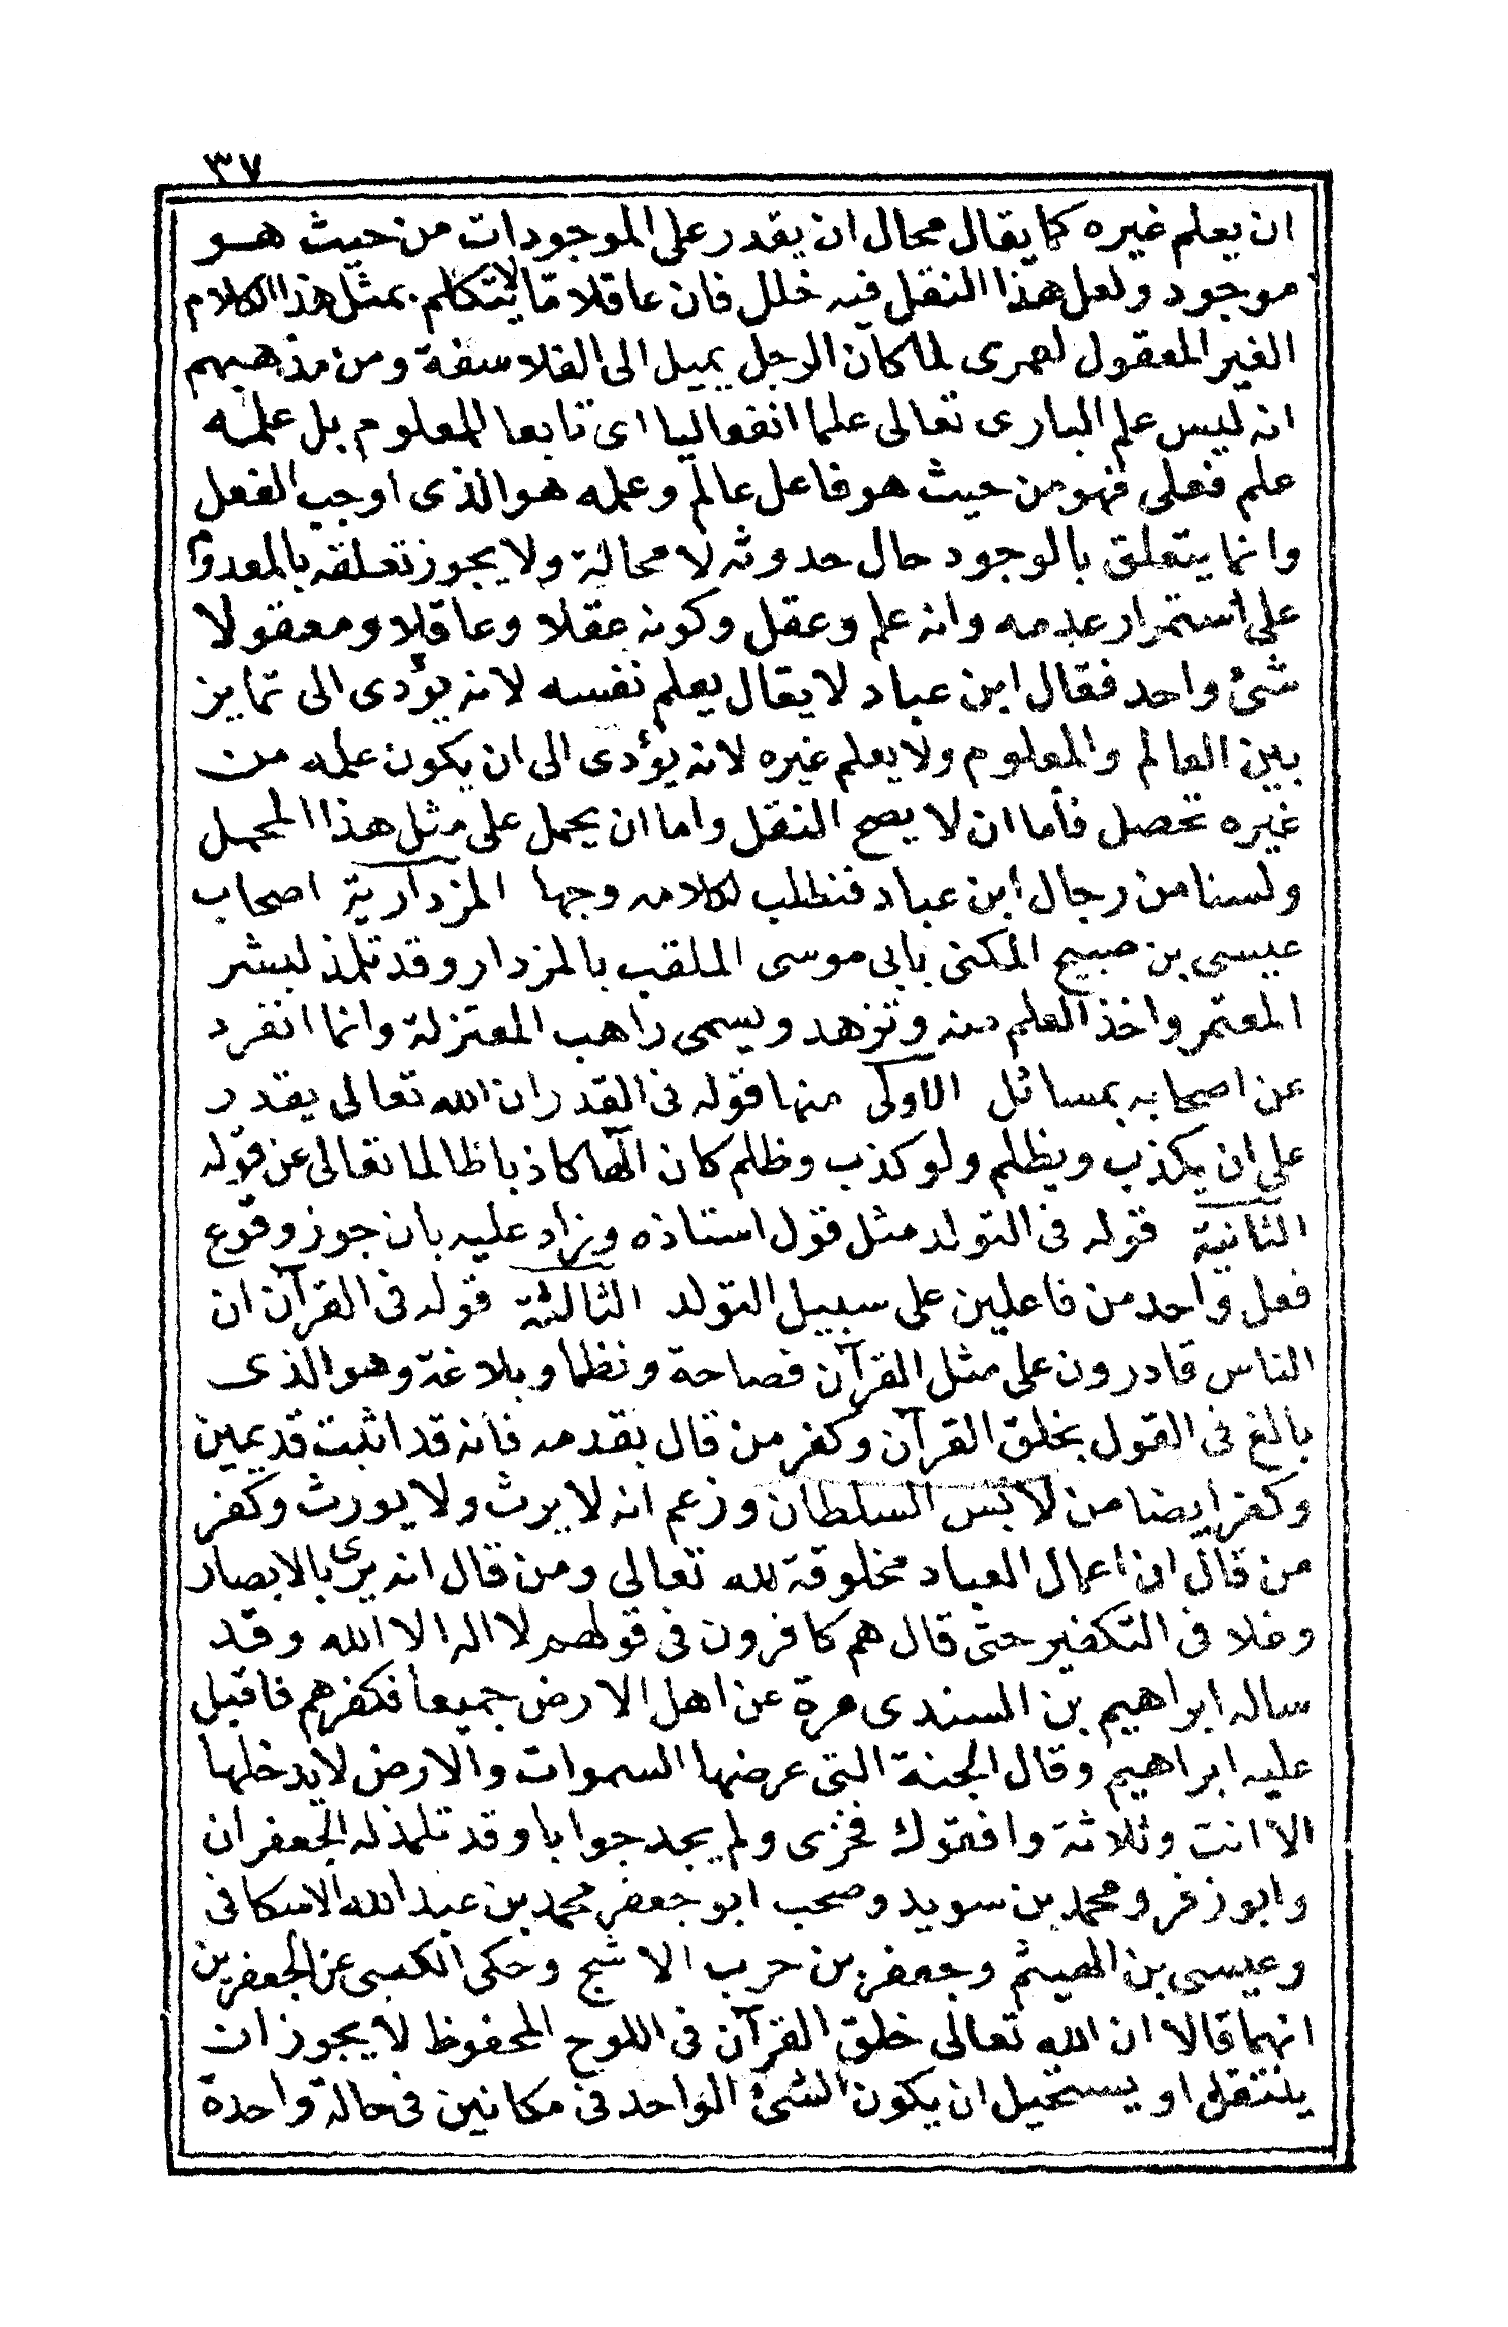 ٣٧
ان يعلم غيره كما يقال محال ان يقدر على الموجودات من حيث هو
موجود ولعل هذا النقل فيه خلل فان عاقلا ما لا يتكلم بمثل هذا الكلام
الغير المعقول لعمرى لما كان الرجل يميل الى الفلاسفة ومن مذهبهم
انه ليس علم البارى تعالى علما انفعاليا اى تابعا للمعلوم بل علمه
علم فعلى فهو من حيث هو فاعل عالم وعلمه هو الذى اوجب الفعل
وانما يتعلق بالوجود حال حدوثه لا محالة ولا يجوز تعلقه بالمعدوم
على استمرار عدمه وانه علم وعقل وكونه عقلا وعاقلا ومعقولا
شئ واحد فقال ابن عباد لا يقال يعلم نفسه لانه يؤدى الى تمايز
بين العالم والمعلوم ولا يعلم غيره لانه يؤدى الى ان يكون علمه من
غيره تحصل فاما ان لا يصح النقل واما ان يحمل على مثل هذا المحمل
ولسنا من رجال ابن عباد فنطلب لكلامه وجها المزدارية اصحاب
عيسى بن صبيح المكنى بابى موسى الملقب بالمزدار وقد تلمذ لبشر
المعتمر واخذ العلم منه وتزهد ويسمى راهب المعتزلة وانما انفرد
عن اصحابه بمسائل الاولى منها قوله فى القدر ان الله تعالى يقدر
على ان يكذب ويظلم ولو كذب وظلم كان الٓها كاذبا ظالما تعالى عن قوله
الثانية قوله فى التولد مثل قول استاذه وزاد عليه بان جوز وقوع
فعل واحد من فاعلين على سبيل التولد الثالثة قوله فى القرآن ان
الناس قادرون على مثل القرآن فصاحة ونظما وبلاغة وهو الذى
بالغ فى القول بخلق القرآن وكفر من قال بقدمه فانه قد اثبت قديمين
وكفر ايضا من لابس السلطان وزعم انه لا يرث ولا يورث وكفر
من قال ان اعمال العباد مخلوقة لله تعالى ومن قال انه يرى بالابصار
وغلا فى التكفير حتى قال هم كافرون فى قولهم لا اله الا الله وقد
ساله ابراهيم بن السندى مرة عن اهل الارض جميعا فكفرهم فاقبل
عليه ابراهيم وقال الجنة التى عرضها السموات والارض لا يدخلها
الا انت وثلاثة وافقوك فخزى ولم يجد جوابا وقد تلمذ له الجعفران
وابو زفر ومحمد بن سويد وصحب ابو جعفر محمد بن عبد الله الاسكافى
وعيسى بن الهيثم وجعفر بن حرب الاشج وحكى الكعبى عن الجعفرين
انهما قالا ان الله تعالى خلق القرآن فى اللوح المحفوظ لا يجوز ان
ينتقل او يستحيل ان يكون الشئ الواحد فى مكانين فى حالة واحدة